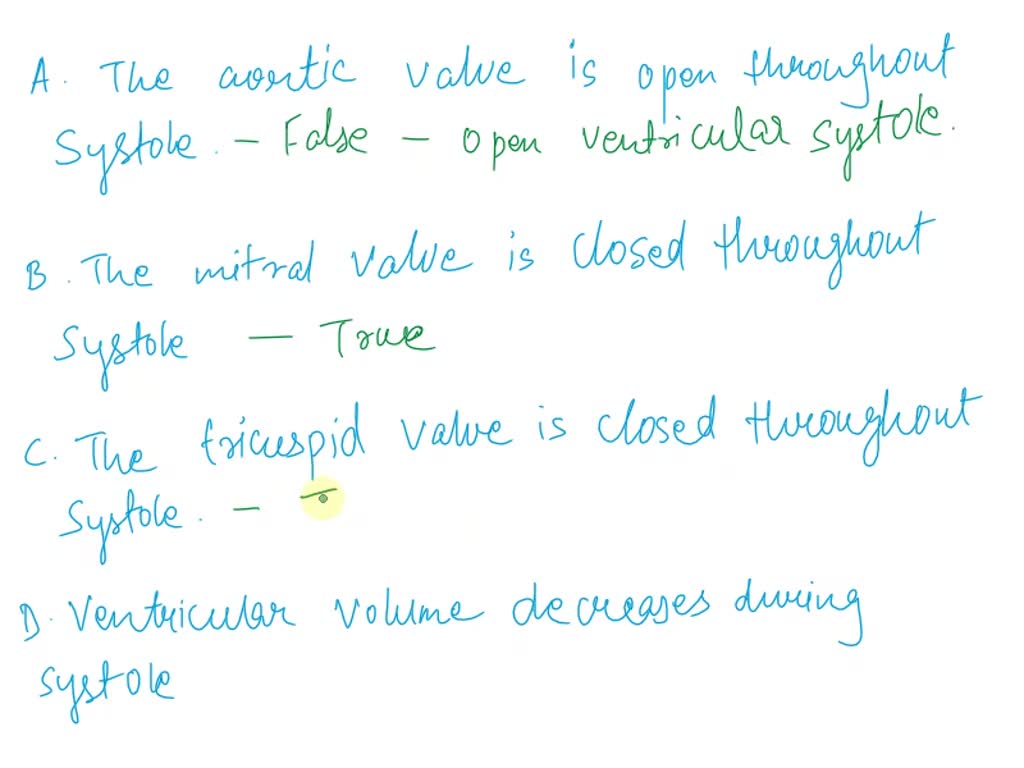 A. The aortic valve is open throughout
Systole. - False - open ventricular systole.
B. The mitral valve is closed throughout
Systole - True
C. The tricuspid valve is closed throughout
Systole. -
D. Ventricular volume decreases during
systole